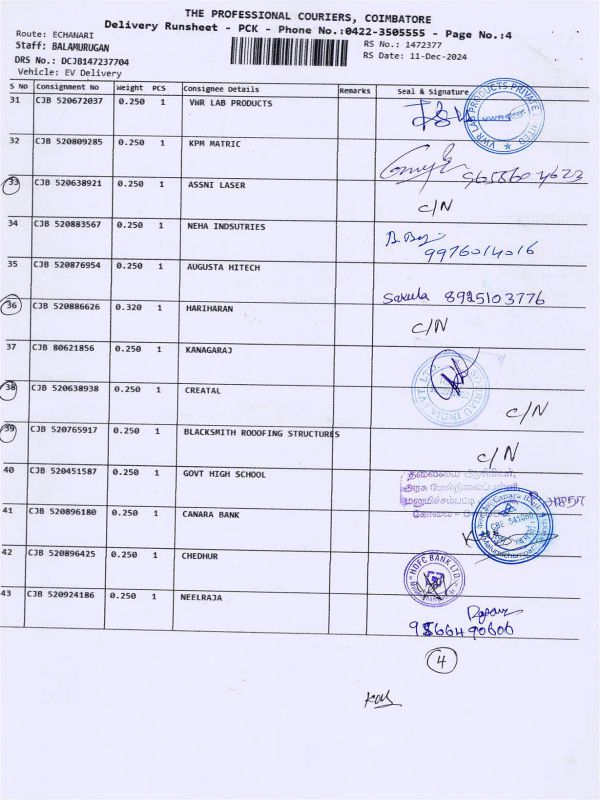 THE PROFESSIONAL COURIERS, COIMBATORE
Delivery Runsheet - PCK - Phone No.:0422-3505555 - Page No.:4
Route: ECHANARI
Staff: BALAMURUGAN
RS No.: 1472377
DRS No.: DCJB147237704
RS Date: 11-Dec-2024
Vehicle: EV Delivery
S No Consignment No Weight PCS Consignee Details Remarks Seal & Signature
31 CJB 520672037 0.250 1 VWR LAB PRODUCTS
VWR LAB PRODUCTS PRIVATE LIMITED
32 CJB 520809285 0.250 1 KPM MATRIC
33 CJB 520638921 0.250 1 ASSNI LASER
C/N
34 CJB 520883567 0.250 1 NEHA INDSUTRIES
9976014016
35 CJB 520876954 0.250 1 AUGUSTA HITECH
8925103776
36 CJB 520886626 0.320 1 HARIHARAN
C/N
37 CJB 80621856 0.250 1 KANAGARAJ
38 CJB 520638938 0.250 1 CREATAL
C/N
39 CJB 520765917 0.250 1 BLACKSMITH ROOOFING STRUCTURES
C/N
40 CJB 520451587 0.250 1 GOVT HIGH SCHOOL
தலைமை ஆசிரியர்,
அரசு மேல்நிலைப்பள்ளி
கோவை
41 CJB 520896180 0.250 1 CANARA BANK
Canara Bank
42 CJB 520896425 0.250 1 CHEDHUR
HDFC BANK LTD.
43 CJB 520924186 0.250 1 NEELRAJA
4